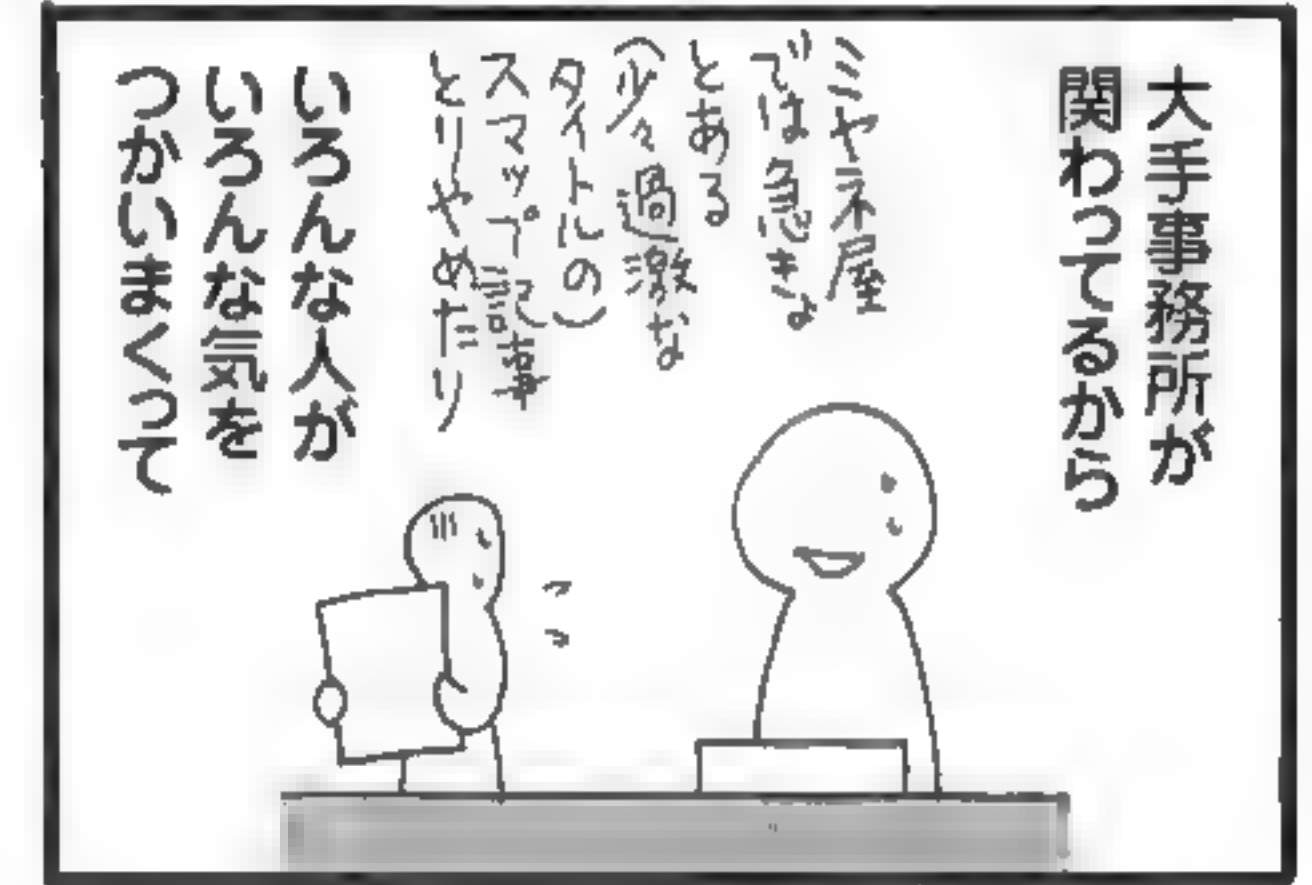 大手事務所が
関わってるから
ミヤネ屋
では急きょ
とある
(少々過激な
タイトルの)
スマップ記事
とりやめたり
いろんな人が
いろんな気を
つかいまくって